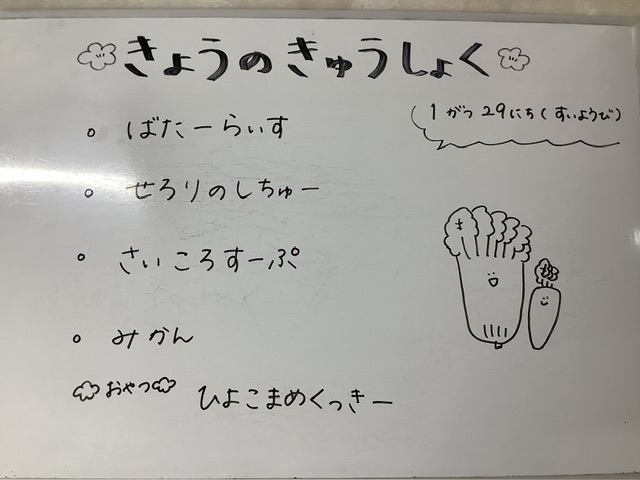 きょうのきゅうしょく
1がつ29にち(すいようび)
。ばたーらいす
。せろりのしちゅー
。さいころすーぷ
。みかん
おやつ ひよこまめくっきー